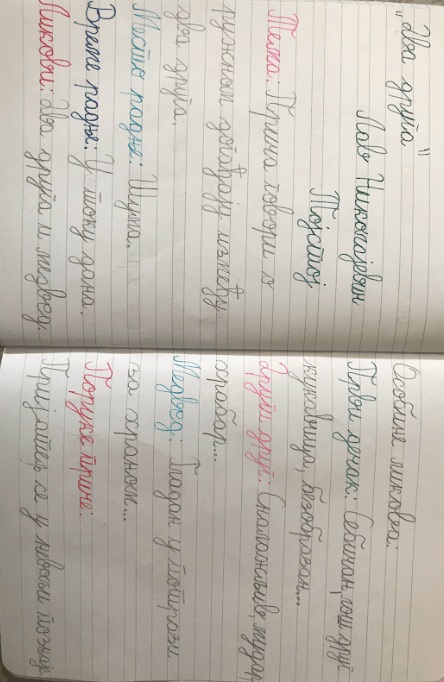 „Два друга"
Лав Николајевич
Толстој
Тема: Прича говори о
ружном догађају између
два друга.
Место радње: Шума...
Време радње: У току дана.
Ликови: Два друга и медвед.
Особине ликова:
Први дечак: Себичан, лош друг,
кукавица, безобразан...
Други друг: Сналажљив, мудар,
храбар...
Медвед: Гладан у потрази
за храном...
Поруке приче:
Пријатељ се у невољи познаје.